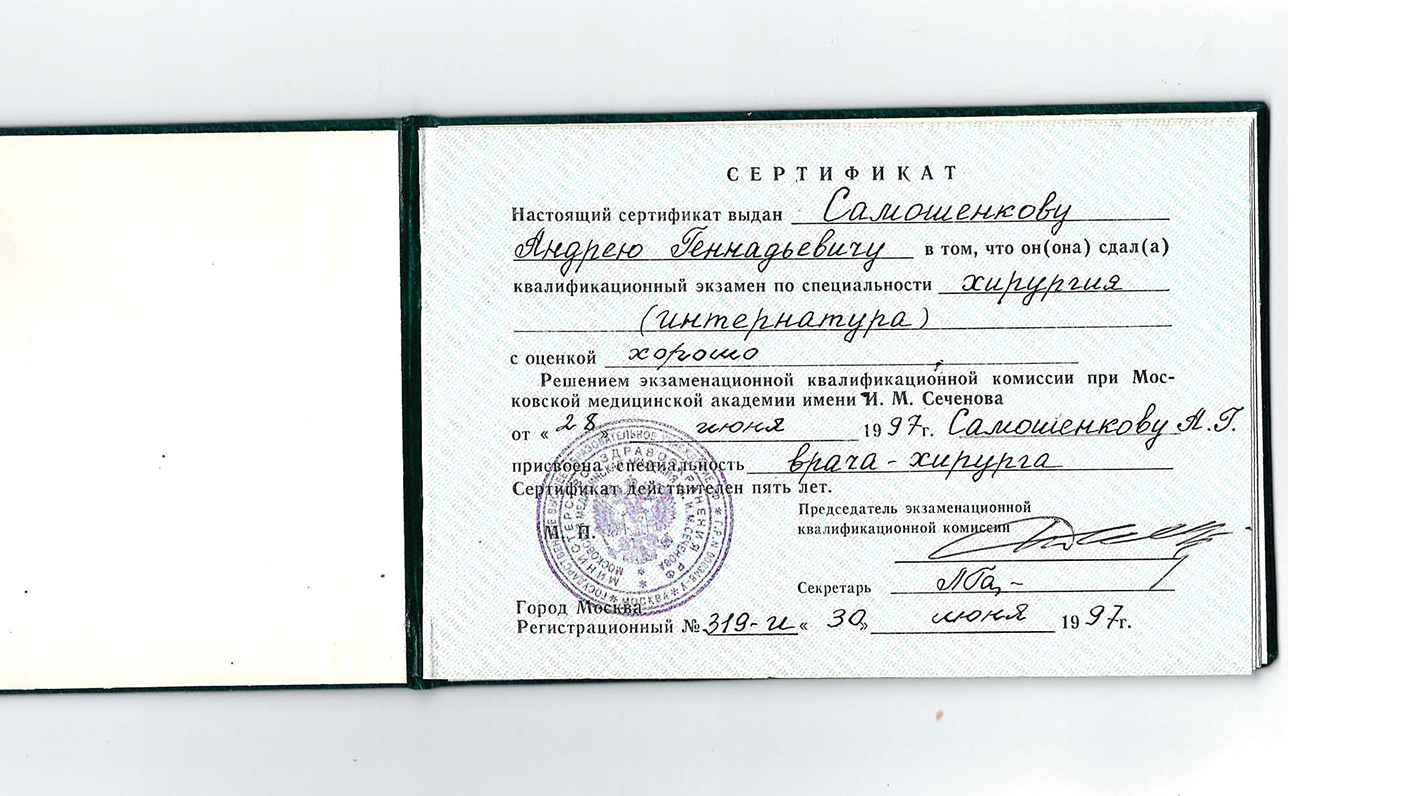 СЕРТИФИКАТ
Настоящий сертификат выдан Самошенкову
Андрею Геннадьевичу в том, что он(она) сдал(а)
квалификационный экзамен по специальности хирургия
(интернатура)
с оценкой хорошо
Решением экзаменационной квалификационной комиссии при Мос-
ковской медицинской академии имени И. М. Сеченова
от «28» июня 1997г. Самошенкову А.Г.
присвоена специальность врача-хирурга
Сертификат действителен пять лет.
Председатель экзаменационной
квалификационной комиссии
М. П.
МИНИСТЕРСТВО ЗДРАВООХРАНЕНИЯ РФ
МОСКВА
Секретарь
Город Москва
Регистрационный № 319-и «30» июня 1997г.